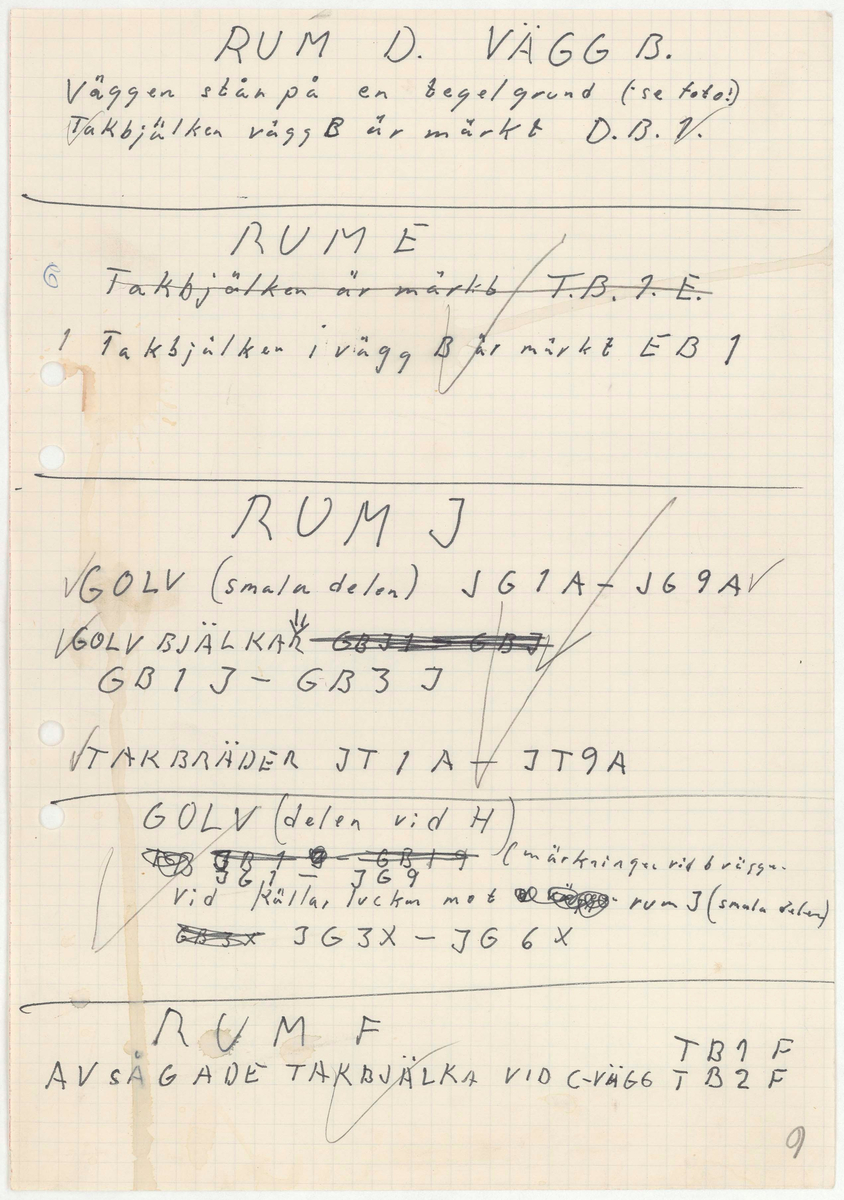 RUM D. VÄGG B.
Väggen står på en tegelgrund (se foto!)
Takbjälken vägg B är märkt D.B.1.
RUM E
6 Takbjälken är märkt T.B.1.E.
1 Takbjälken i vägg B är märkt EB1
RUM J
GOLV (smala delen) JG1A - JG9A
GOLVBJÄLKAR GBJ1 - GBJ
GB1J - GB3J
TAKBRÄDER JT1A - JT9A
GOLV (delen vid H)
JB1 - GB19 (märkningen vid b vägge.
JG1 - JG9
vid källarluckan mot rum J (smala delen)
GB3X JG3X - JG6X
RUM F
TB1F
AVSÅGADE TAKBJÄLKA VID C-VÄGG TB2F
9